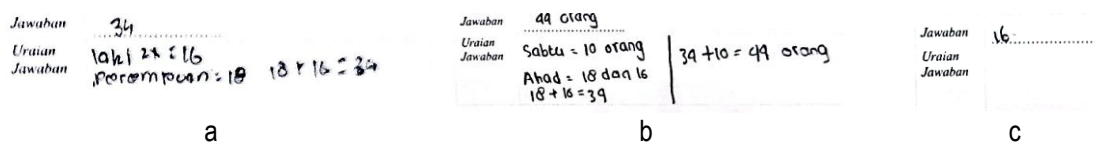 Jawaban 34
Uraian Jawaban
laki 2x = 16
Perempuan = 18 18 + 16 = 34
a
Jawaban 44 orang
Uraian Jawaban
Sabtu = 10 orang
Ahad = 18 dan 16
18 + 16 = 34
34 + 10 = 44 orang
b
Jawaban 16
Uraian Jawaban
c